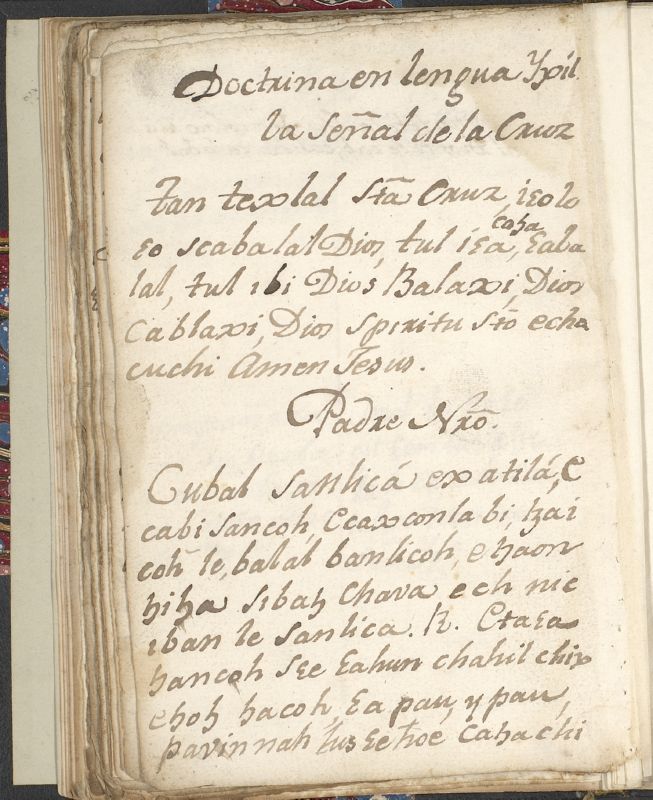 Doctrina en lengua Yxil.
la Señal de la Cruz
tan texlal Sta Cruz, iɛolo
ɛo scabalal Dios, tul iɛa, caha ɛaba
lal, tul ibi Dios Balaxi, Dios
Cablaxi, Dios spiritu Sto echa
cuchi Amen Jesus.
Padre Nro.
Cubal sanlicá exatilá, C
cabi sancoh, Ccaxconla bi, tzai
coh le, balal banlicoh, e haon
sibah Chava ech nic
iban le sanlica. R. Ctaɛa
hancoh sɛe ɛahun chahil chix
ehoh hacoh, ɛa pau, y pau,
pavinnah, tus ɛe hoe cahachi